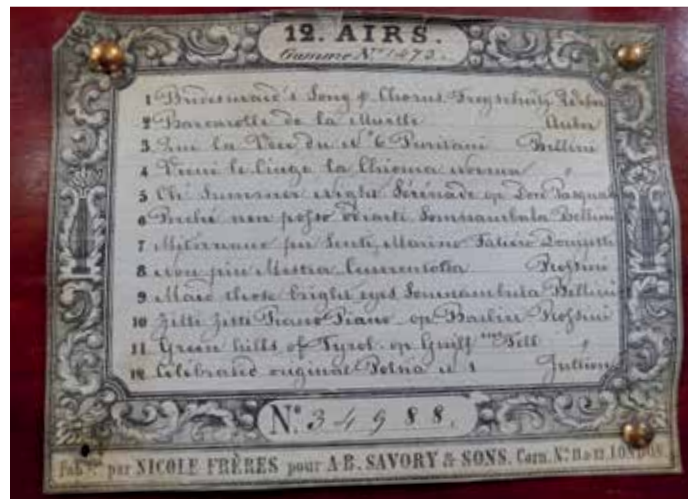 12. AIRS.
Gamme No. 1473.
1 Bridesmaid's Song & Chorus Freyschutz Weber
2 Barcarolle de la Muette Auber
3 la No. 6 Puritani Bellini
4 Vieni le Cinge la Chioma Norma "
5 Oh! Summer Night Sérénade op Don Pasquale
6 Perché non posso odiarti Somnambula Bellini
7 Marino Faliero Donizetti
8 Non piu Mestra Cenerentola Rossini
9 Maid those bright eyes Somnambula Bellini
10 Zitti Zitti Piano Piano op Barbier Rossini
11 Green hills of Tyrol. op Guill me Tell "
12 Celebrated original Polka No. 1 Jullien
No. 34988.
Fab par NICOLE FRÈRES pour A.B. SAVORY & SONS. Corn. No. 11 & 12. LONDON.